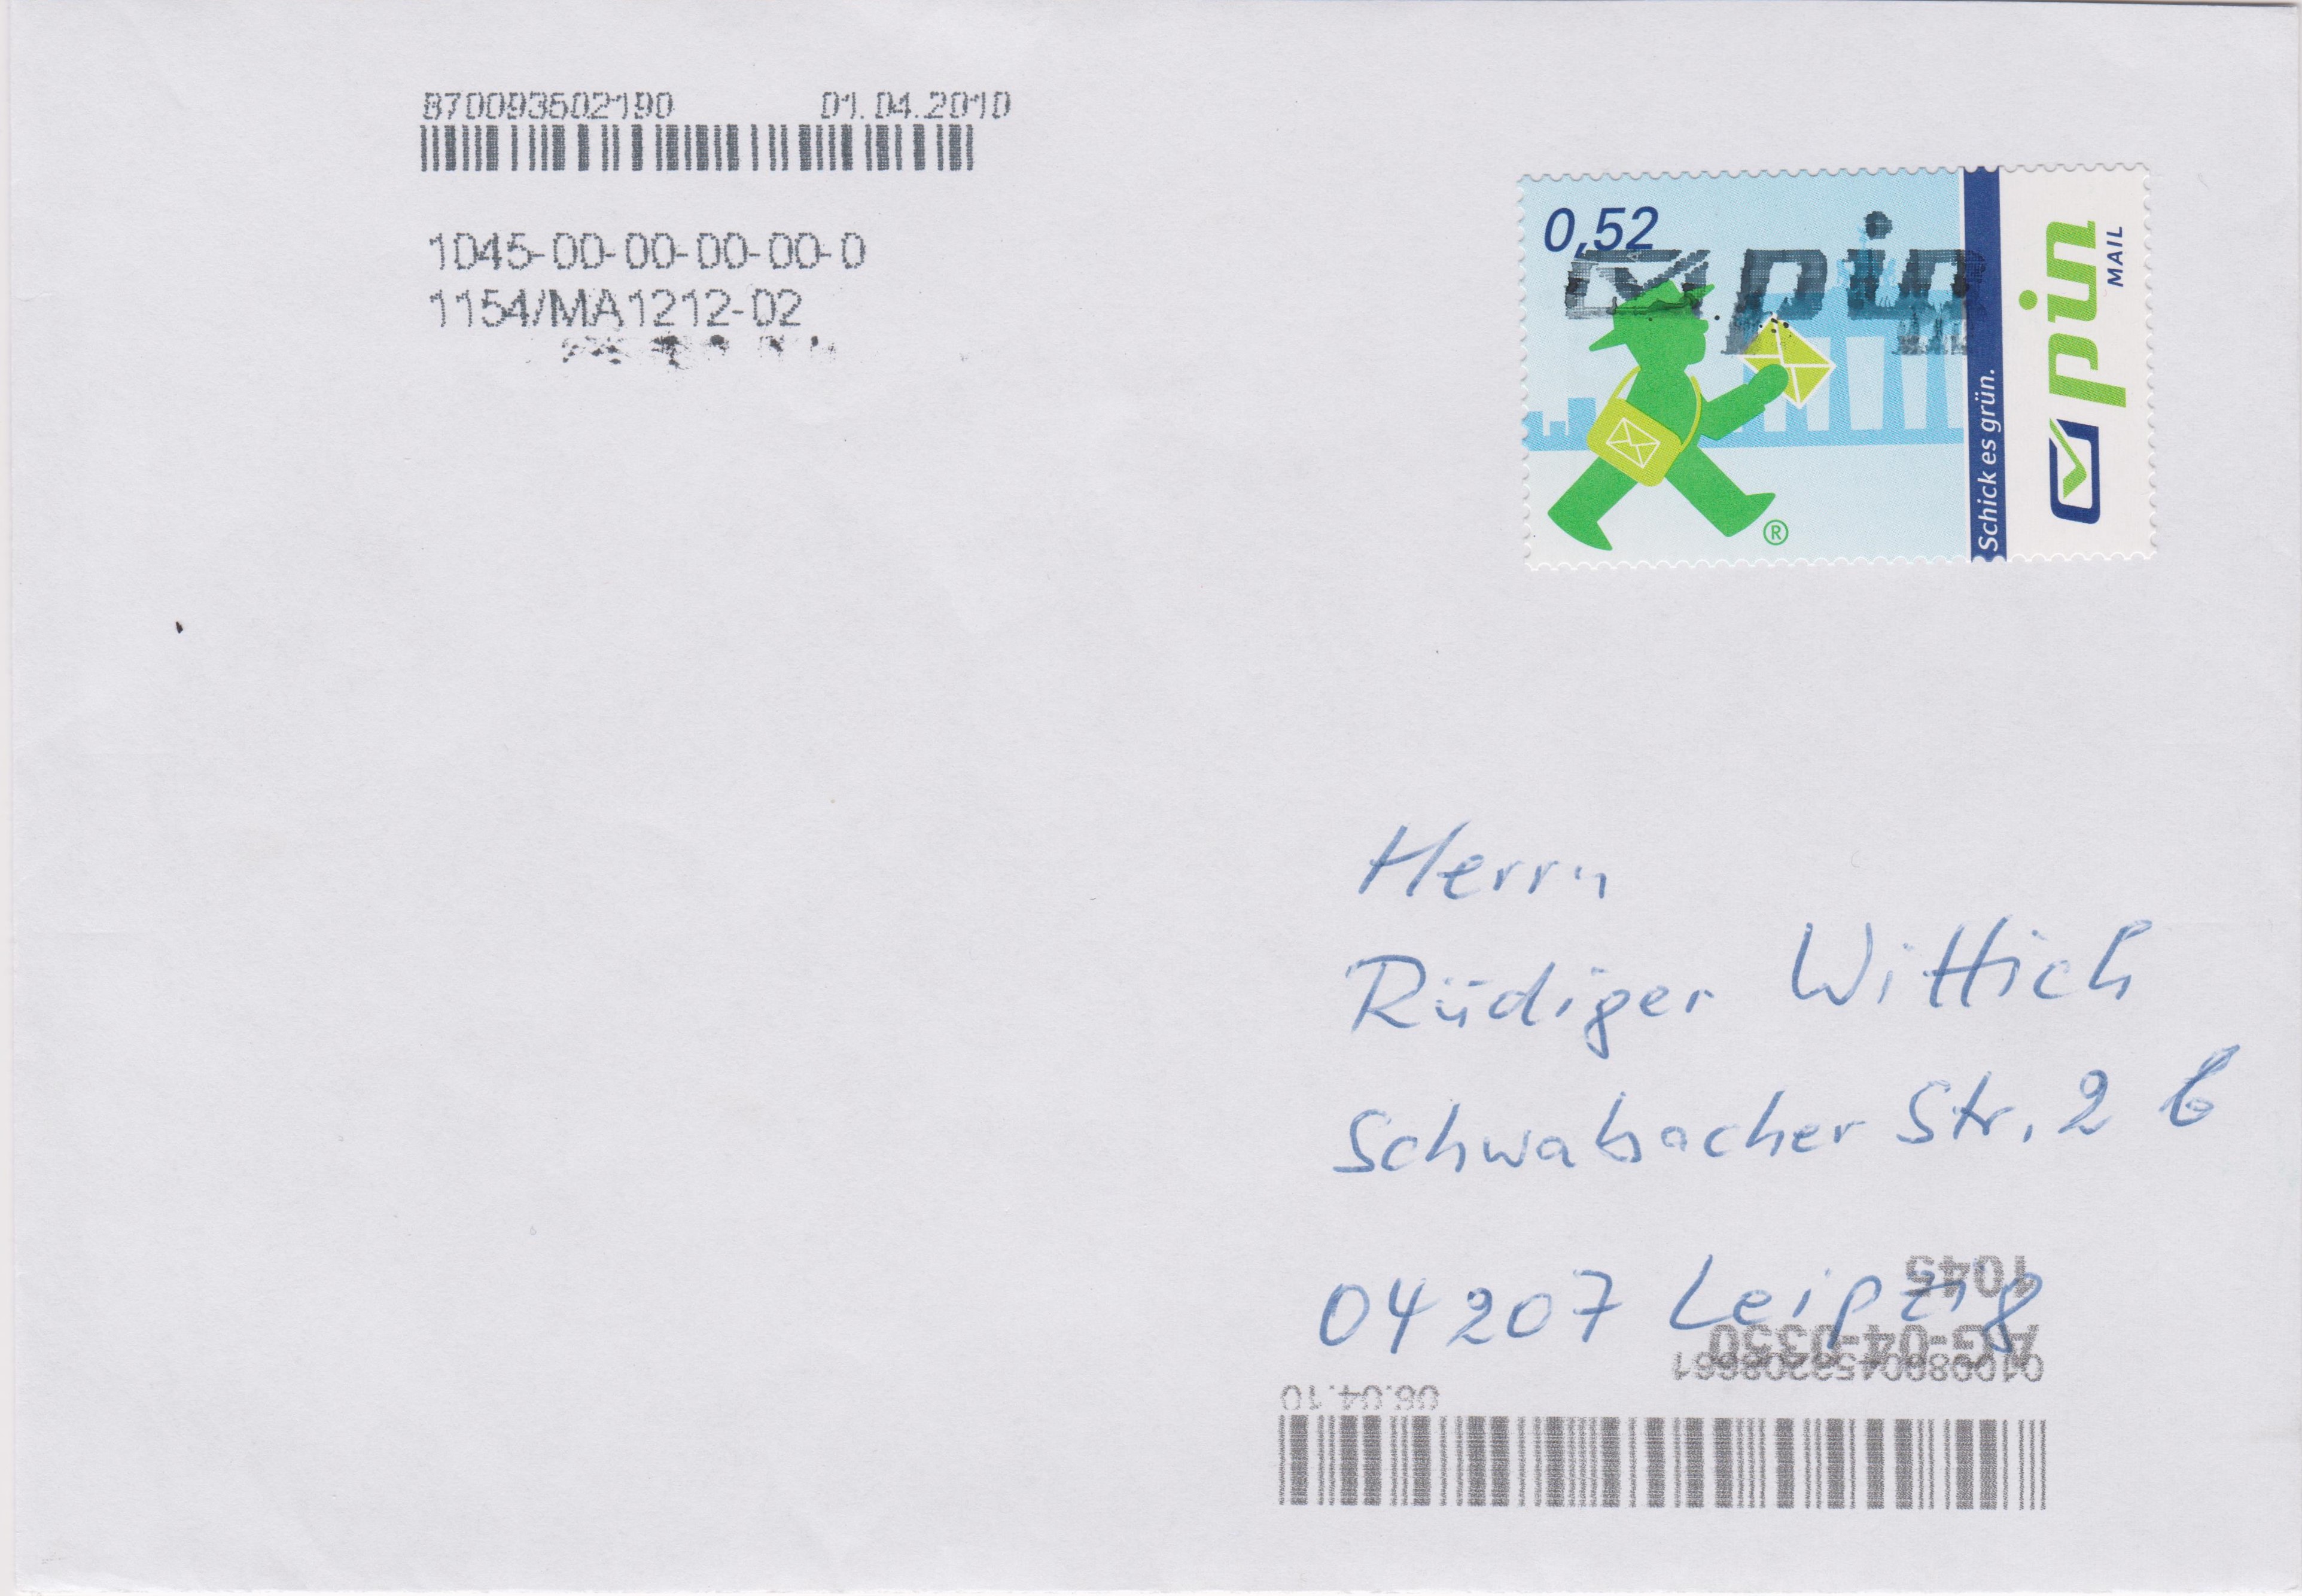 870093602190 01.04.2010
1045-00-00-00-00-0
1154/MA1212-02
0,52
pin
Schick es grün.
pin
MAIL
®
Herrn
Rüdiger Wittich
Schwabacher Str. 2 b
04207 Leipzig
1045
AG-04-0350
06.04.10